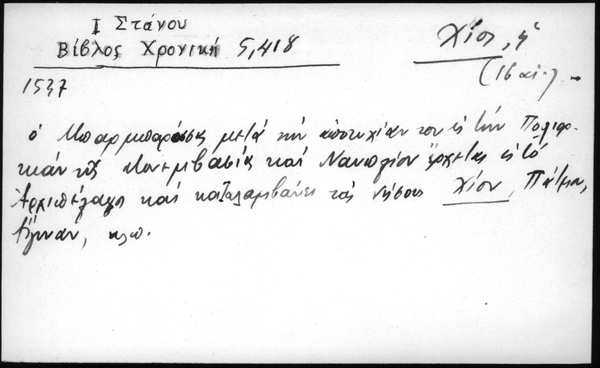 Ι Στάνου
Βίβλος Χρονική 5,418
Χίος, ἡ
(16 αἰ.)
1537
ὁ Μπαρμπαρόσσας μετά τήν ἀποτυχίαν του εἰς τήν Πολιορ-
κίαν τῆς Μονεμβασίας καί Ναυπλίου ἔρχεται εἰς τό
Ἀρχιπέλαγος καί καταλαμβάνει τάς νήσους Χίον, Πάτμον,
Αἴγιναν, κλπ.